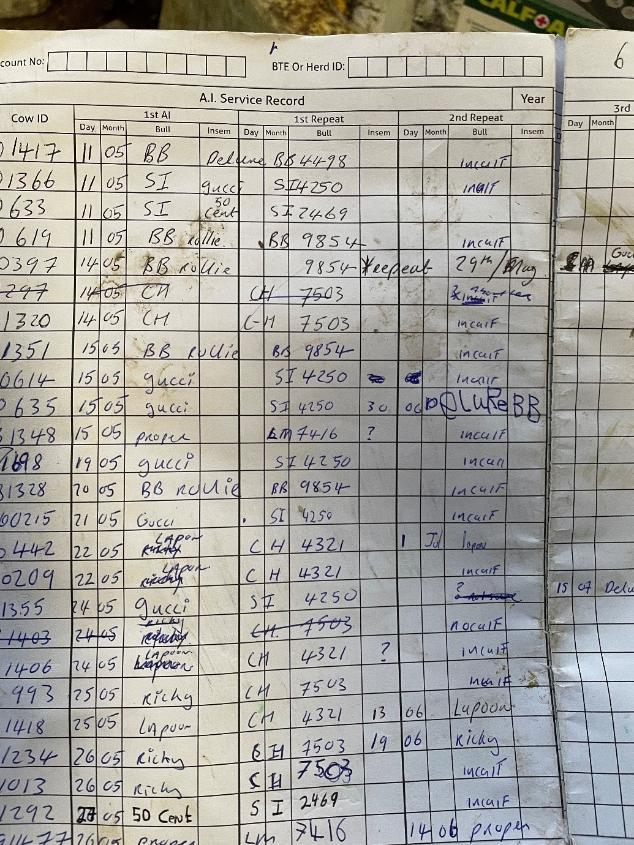 CALF
count No:
BTE Or Herd ID:
6
A.I. Service Record Year
Cow ID 1st AI 1st Repeat 2nd Repeat 3rd
Day Month Bull Insem Day Month Bull Insem Day Month Bull Insem Day Month
1417 11 05 BB Deluxe BB 4498 incalf
1366 11 05 SI gucci SI 4250 incalf
633 11 05 SI 50 Cent SI 2469
0619 11 05 BB rollie BB 9854 incalf
0397 14 05 BB Rollie 9854 repeat 29th / Aug
297 14 05 CH CH 7503
1320 14 05 CH CH 7503 incalf
1351 15 05 BB rollie BB 9854 incalf
0614 15 05 gucci SI 4250 incalf
0635 15 05 gucci SI 4250 30 BB
1348 15 05 proper LM 7416 ? incalf
1698 19 05 gucci SI 4250 incalf
1328 20 05 BB rollie BB 9854 incalf
00215 21 05 Gucci SI 4250 incalf
0442 22 05 Lapon CH 4321 1 Jul lapon
0209 22 05 Lapon CH 4321 incalf
1355 24 05 gucci SI 4250 ? 15 07
1403 24 05 Richy CH 7503 nocalf
1406 24 05 Lapoon CH 4321 ? incalf
993 25 05 Richy CH 7503 incalf
1418 25 05 Lapoon CH 4321 13 06 Lapoon
1234 26 05 Richy CH 7503 19 06 Richy
1013 26 05 Richy CH 7503 incalf
1292 27 05 50 Cent SI 2469 incalf
1477 26 05 proper LM 7416 14 06 proper